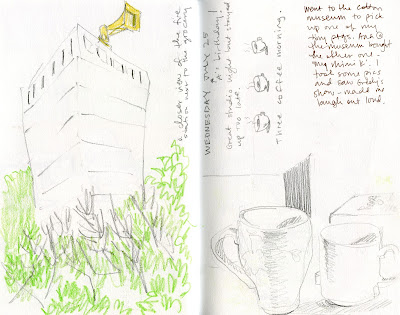 a closer view of the fire
station next to the grocery
WEDNESDAY JULY 25
"A" birthday!
Great studio night but stayed
up too late.
Three coffee morning.
went to the cotton
museum to pick
up one of my
tiny ptgs. Ana @
the museum bought
the other one -
"my mini K". I
took some pics
and saw
show - made me
laugh out loud.